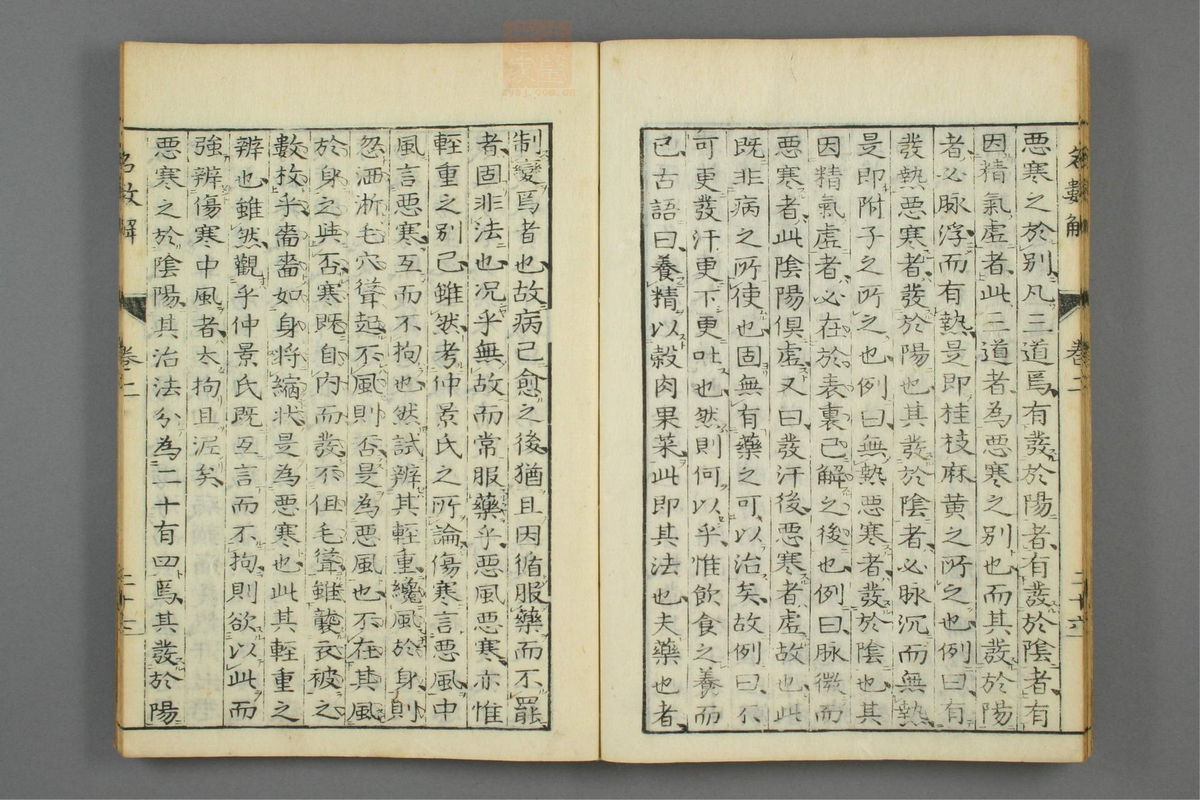 悪寒之於別凡三道焉有發於陽者有發於陰者有
因精氣虛者此三道者為悪寒之別也而其發於陽
者必脉浮而有熱是即桂枝麻黄之所之也例曰有
發熱悪寒者發於陽也其發於陰者必脉沉而無熱
是即附子之所之也例曰無熱悪寒者發於陰也其
因精氣虛者必在於表裏已解之後也例曰脉微而
悪寒者此陰陽俱虛又曰發汗後悪寒者虛故也此
既非病之所使也固無有藥之可以治矣故例曰不
可更發汗更下更吐也然則何以乎惟飲食之養而
已古語曰養精以穀肉果菜此即其法也夫藥也者
名數解
卷二
二十六
制變焉者也故病已愈之後猶且因循服藥而不罷
者固非法也况乎無故而常服藥乎悪風悪寒亦惟
輊重之別已雖然考仲景氏之所論傷寒言悪風中
風言悪寒互而不拘也然試辨其輊重纔風於身則
忽洒淅毛穴聳起不風則否是為悪風也不在其風
於身之與否寒既自内而發不但毛聳雖襲衣被之
數枚乎嗇嗇如身将縮状是為悪寒也此其輊重之
辨也雖然觀乎仲景氏既互言而不拘則欲以此而
強辨傷寒中風者太拘且泥矣
悪寒之於陰陽其治法分為二十有四焉其發於陽
名數解
卷二